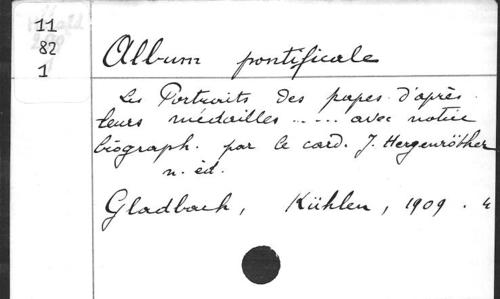 11
82
1
Album pontificale
Les Portraits des papes d'après
leurs médailles ..... avec notice
biograph. par le card. J. Hergenröther
n. éd.
Gladbach, Kühlen, 1909. 4